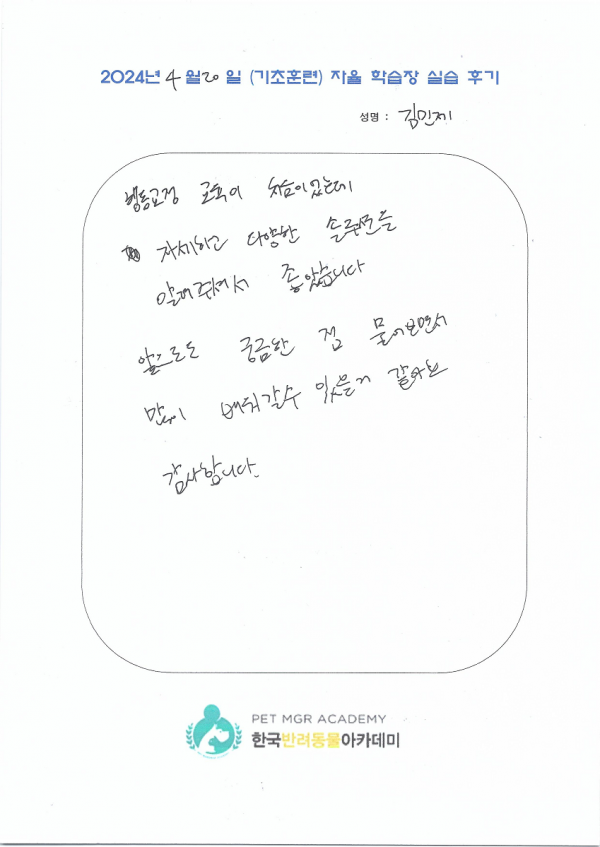 2024년 4월 20일 (기초훈련) 자율 학습장 실습 후기
성명 : 김민제
행동교정 교육이 처음이었는데
자세하고 다양한 솔루션을
알려주셔서 좋았습니다
앞으로도 궁금한 점 물어보면서
많이 배워갈수 있을거 같아요
감사합니다.
PET MGR ACADEMY
한국반려동물아카데미